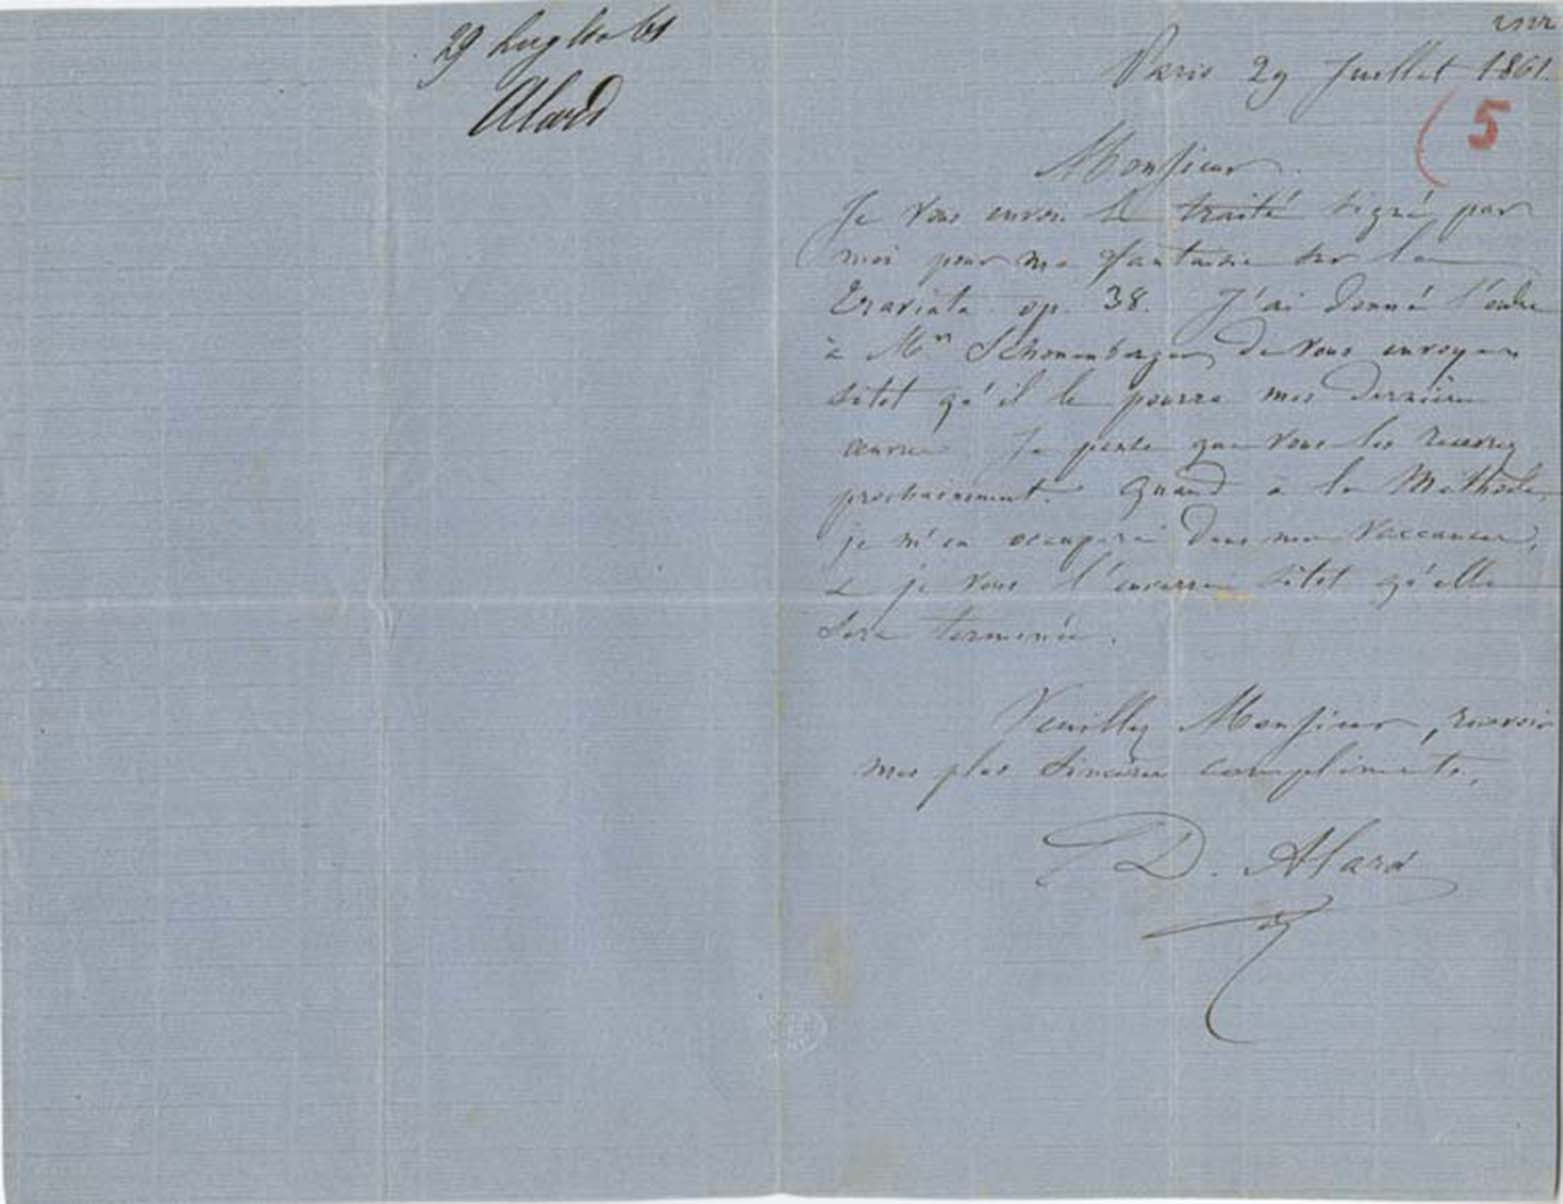 29 Luglio 61
Alard
Paris 29 Juillet 1861.
( 5
Monsieur.
Je vous envoi le traité signé par
moi pour ma fantaisie sur la
Traviata op. 38. J'ai donné l'ordre
à Mr Schonenberger de vous envoyer
sitot qu'il le pourra mes dernières
œuvres. Je pense que vous les recevrez
prochainement. Quand à la Méthode
je m'en occuperai dans mes vaccances,
& je vous l'enverrai sitot qu'elle
sera terminée.
Veuillez Monsieur, recevoir
mes plus sincères compliments.
D. Alard